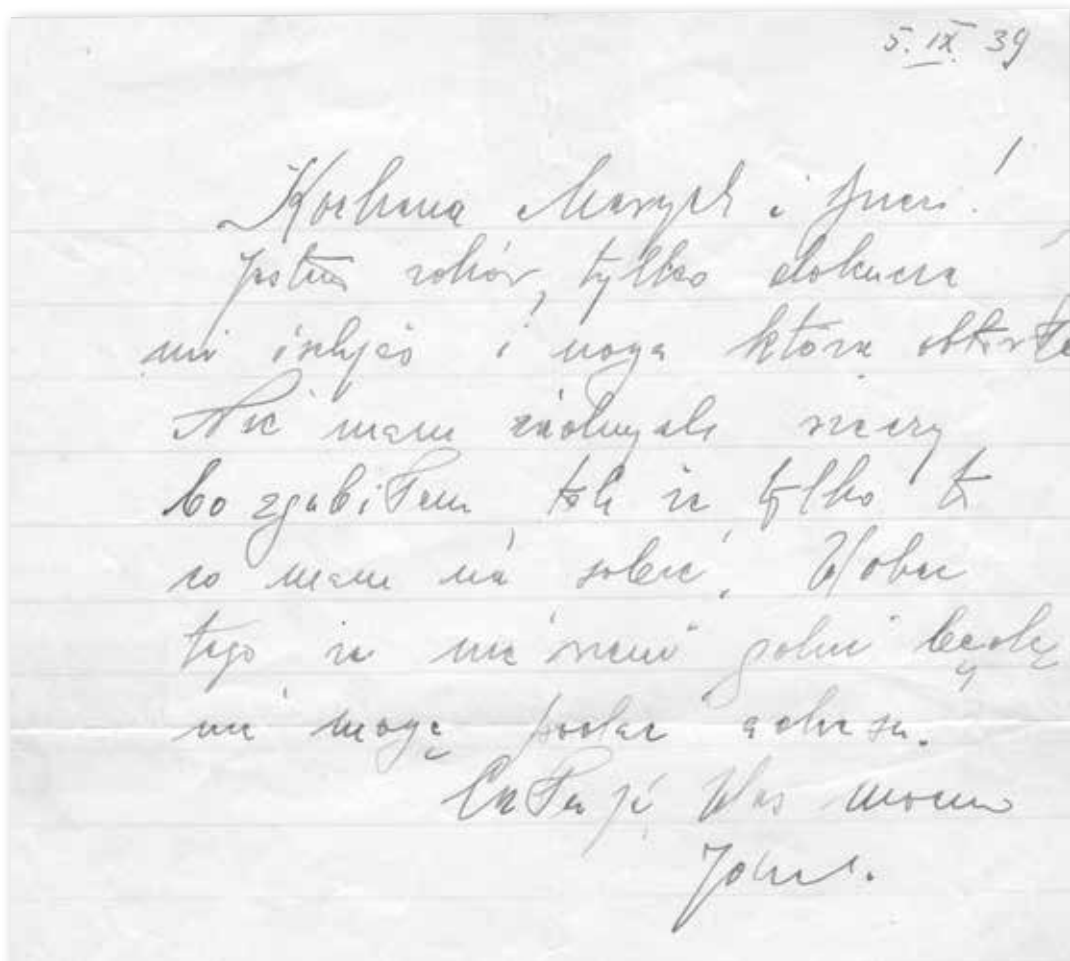 5. IX. 39
Kochana Marych i
Jestem zdrów, tylko dokucza
mi ischjas i noga którą obtarłe
Nie mam żadnych rzeczy
bo zgubiłem tak że tylko to
co mam na sobie. Wobec
tego że nie wiem gdzie będę
nie mogę podać adresu.
Całuję Was mocno